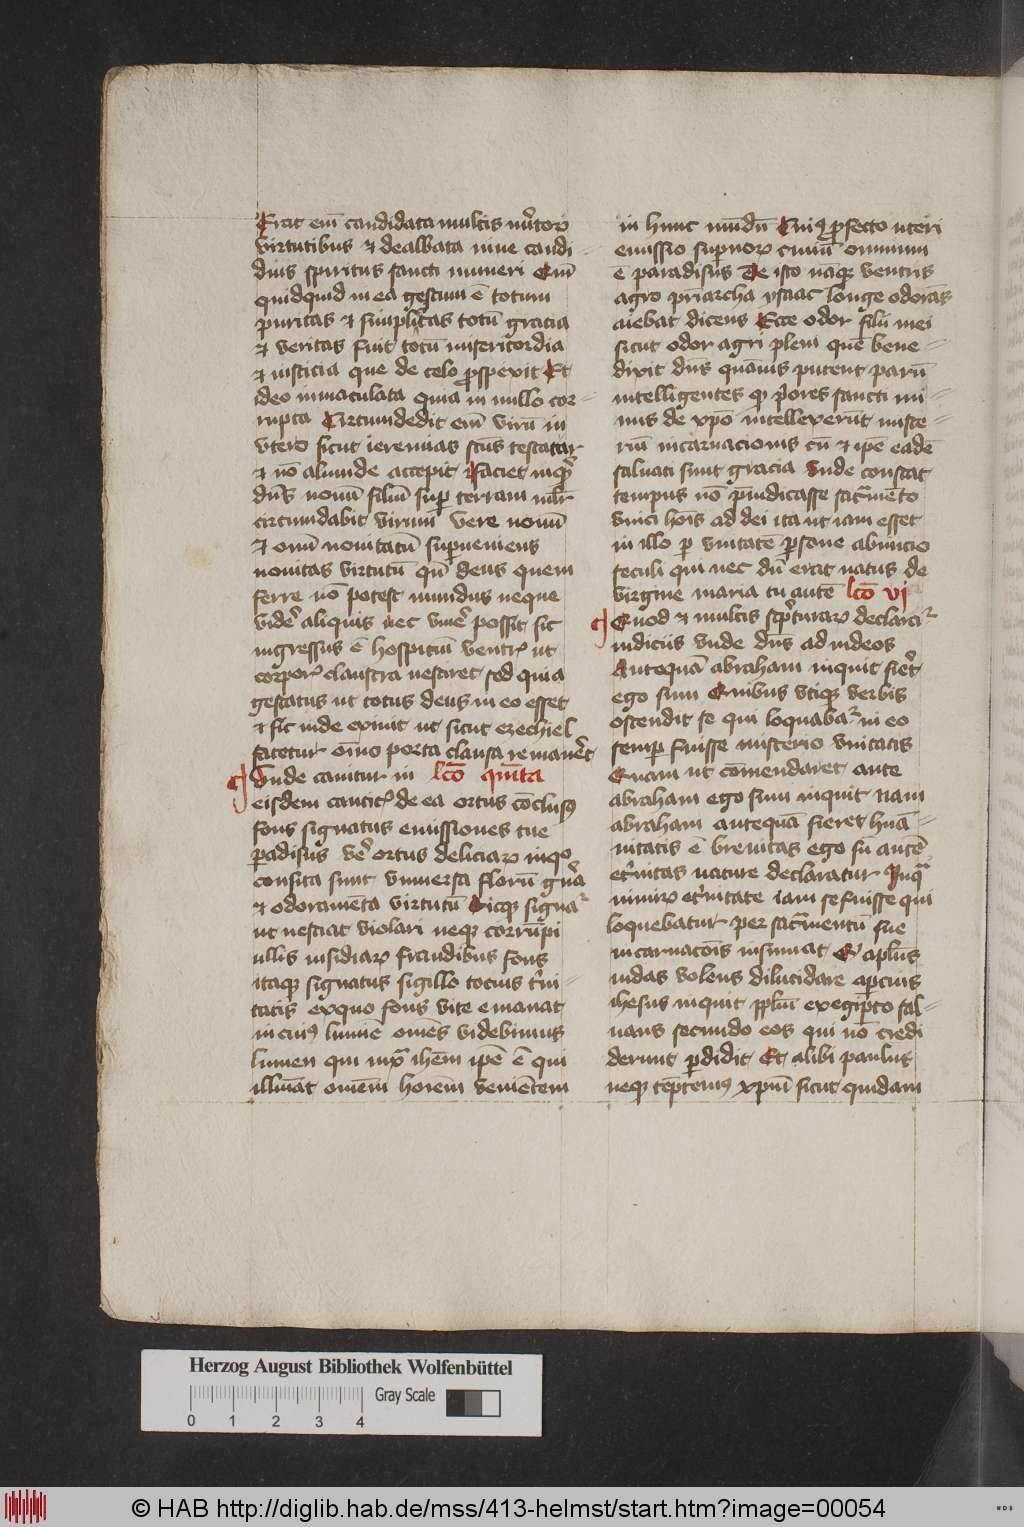 Erat em̄ candidata multis
virtutibus ⁊ dealbata niue candi-
dius spiritus sancti muneri Cui
quidquid in ea gestum ē totum
puritas ⁊ simplicitas totū gracia
⁊ veritas fuit totū misericordia
⁊ iusticia que de celo ꝓspexit Et
ideo inmaculata quia in nullo cor-
rupta Circumdedit em̄ virū in
vtero sicut ieremias sctūs testatur
⁊ nō aliunde accepit faciet inqͥt
dn̄s nouū filiū suꝑ terram
circumdabit virum vere nouū
⁊ oīm nouitatū suꝑueniens
nouitas virtutū deus quem
ferre nō potest mundus neque
vider̄ aliquis nec viuer̄ possit sic
ingressus ē hospitiū ventꝭ ut
corporꝭ claustra nesciret sed quia
gestatus ut totus deus in eo esset
⁊ sic inde exiuit ut sicut ezechiel
fatetur oīno porta clausa remaner̄t
Unde canitur in lc̄o quīta
eisdem canticꝭ de ea ortus cōclusꝰ
fons signatus emissiones tue
ꝑadisus ver̄ ortus deliciaꝝ in qͦ
consita sunt vniuersa florū gn̄a
⁊ odoramēta virtutū Sicqꝫ signat̄
ut nesciat violari neqꝫ corrūpi
ullis insidiaꝝ fraudibus fons
itaqꝫ signatus sigillo tocius tͥni-
tatis ex quo fons vite emanat
in cuiꝰ lumīe om̄es videbimus
lumen qui iuxͣ ihēm ip̄e ē qui
illuīat omēm hoīem veniētem
in hunc mūdū Cuiꝰ ꝓfecto uteri
emissio suꝑnoꝝ ciuiū omnium
ē paradisus De isto naqꝫ ventris
agro pr̄iarcha ysaac longe odorās
aiebat dicens Ecce odor filii mei
sicut odor agri pleni quē bene-
dixit dn̄s quāuis putent parū
intelligentes qꝫ p̄ores sancti mi-
nus de xp̄o intellexerūt miste-
riū incarnacionis cū ⁊ ip̄e eadē
saluati sunt gracia Unde constat
tempus nō p̄iudicasse sacͣmēto
vnici hoīs ad dei ita ut iam esset
in illo ꝑ vnitatē ꝑsone ab inicio
seculi qui nec dū erat natus de
virgine maria tu autē lc̄o vi
Quod ⁊ multis scͥpturaꝝ declarat̄
iudiciis vnde dn̄s ad iudeos
Antequā abraham inquit fier̄t
ego sum Quibus vtiqꝫ verbis
ostendit se qui loquabat̄ in eo
semꝑ fuisse misterio vnitatis
Quam ut cōmendaret ante
abraham ego sum inquit nam
abraham antequā fieret hūa-
nitatis ē breuitas ego sū autē
et͛nitas nature declaratur Inqͣ
nimiꝝ et͛nitate iam se fuisse qui
loquebatur per sacͣmentū sue
incarnacōis insinuat Et apl̄us
iudas volens dilucidare aꝑcius
ihesus inquit ppl̄m ex egipto sal-
uans secundo eos qui nō credi
derunt ꝑdidit Et alibi paulus
neqꝫ tēptemꝰ xp̄m sicut quidam
Herzog August Bibliothek Wolfenbüttel
0 1 2 3 4
Gray Scale
© HAB http://diglib.hab.de/mss/413-helmst/start.htm?image=00054
WDB